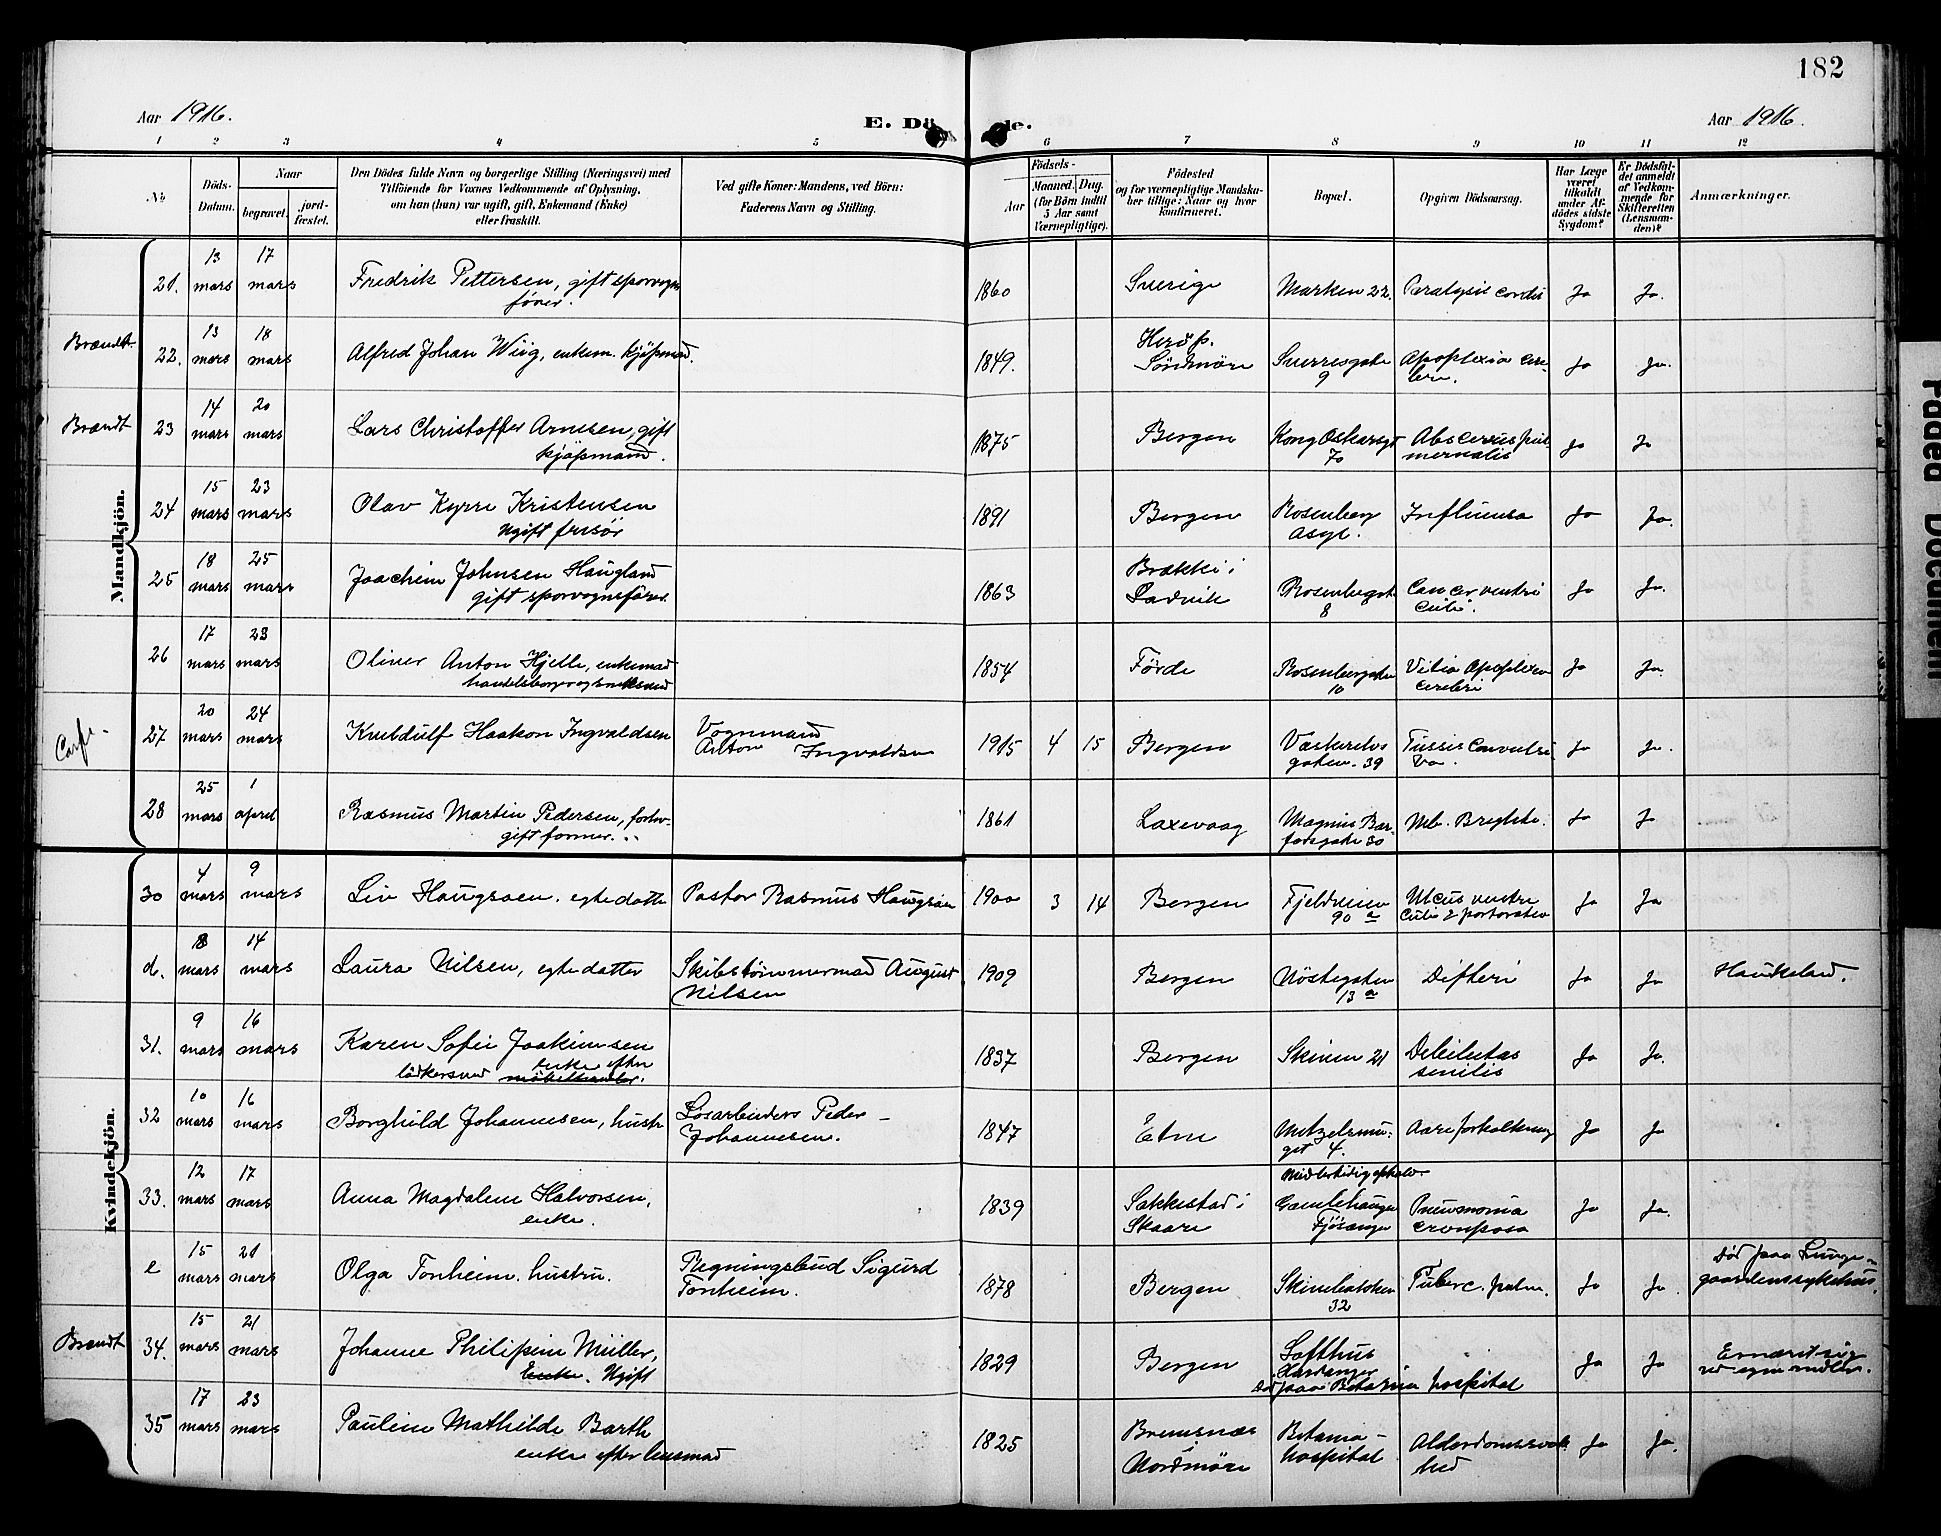 182
Aar 1916.
E. Dö de.
Aar 1916.
1 2 3 4 5 6 7 8 9 10 11 12
No.
Döds-Datum.
Naar
begravet.
jord-fæstet.
Den Dödes fulde Navn og borgerlige Stilling (Næringsvei) med
Tilföiende for Voxnes Vedkommende af Oplysning,
om han (hun) var ugift, gift, Enkemand (Enke)
eller fraskilt.
Ved gifte Koner: Mandens, ved Börn:
Faderens Navn og Stilling.
Födsels-
Aar
Maaned. Dag.
(for Börn indtil
5 Aar samt
Værnepligtige).
Födested
og for værnepligtige Mandska-
ber tillige: Naar og hvor
konfirmeret.
Bopæl.
Opgiven Dödsaarsag.
Har Læge
været
tilkaldt
under Af-
dödes sidste
Sygdom?
Er Dödsfal-
det anmeldt
af Vedkom-
mende for
Skifteretten
(Lensman-
den)?
Anmærkninger.
Mandkjön.
21. 13 mars 17 mars Fredrik Pettersen, gift sporvogns
fører. 1860 Sverige Marken 22. Paralysis cordis Ja Ja.
Brandt. 22. 13 mars 18 mars Alfred Johan Wiig, enkem. kjøpmad. 1849. Herø p.
Søndmøre Sverresgate
9 Apoplexia cere-
bri. Ja Ja.
Brandt 23 14 mars 20 mars Lars Christoffer Arnesen, gift
kjøpmand. 1875 Bergen Kong Oskarsgt
70 Ja Ja
24 15 mars 23 mars Olav Kyrre Kristensen
ugift frisør 1891 Bergen Rosenberg
Asyl. Influensa Ja Ja.
25 18 mars 25 mars Joachim Johnsen Haugland
gift sporvognsfører. 1863 Brække i
Ladvik Rosenbergt
8 Cancer ventri
culi. Ja Ja.
26 17 mars 23 mars Oliver Anton Hjelle, enkemad
1854 Førde Rosenbergsten
10 Vitia Apoplexia
cerebri Ja Ja.
27 20 mars 24 mars Kveldulf Haakon Ingvaldsen Vognmand
Anton Ingvaldsen 1915 4 15 Bergen
gaten. 39 Tussis Convulsi
va. Ja Ja.
28 25 mars 1 april Rasmus Martin Pedersen, forhv-
gift former. 1861 Laxevaag Magnus Bar-
fodsgate 30 Mb. Brightii. Ja Ja
Kvindekjön.
30 4 mars 9 mars Liv Haugsøen. egtedatter Pastor Rasmus Haugsøen 1900 3 14 Bergen Fjeldveien
90 a Ulcus ventri
culi Ja Ja
d. 8 mars 14 mars Laura Nilsen, egtedatter Skibstømmermad August
Nilsen 1909 Bergen Nøstegaten
13 a Difteri Ja Ja Haukeland.
31. 9 mars 16 mars Karen Sofie Joakimsen
enke efter
møbelhandler. 1837 Bergen Skiven 21 Debilitas
senilis Ja Ja.
32 10 mars 16 mars Borghild Johannesen, hustr Løsarbeiders Peder
Johannesen. 1847 Etne
4. Aareforkalkning Ja Ja
33. 12 mars 17 mars Anna Magdalene Halvorsen,
enke. 1839 Sakkestad i
Skaare
Gamlehaugen
Fjøsanger Pneumonia
crouposa Ja Ja.
e 15 mars 21 mars Olga Tonheim. hustru. Regningsbud Sigurd
Tonheim. 1878 Bergen
32 Tuberc. pulm. Ja Ja. Død paa Lunge-
gaardenssykehus.
Brandt 34. 15 mars 21 mars Johanne Philipine Müller,
Enke. Ugift 1829 Bergen Lofthus
Hardanger
død paa Betania hospital Ja Ja
35 17 mars 23 mars Pauline Mathilde Barth
enke efter lensmad 1825 Bremsnæs
Nordmøre Betania-
hospital Alderdomssvak
hed Ja Ja.
Faded Document